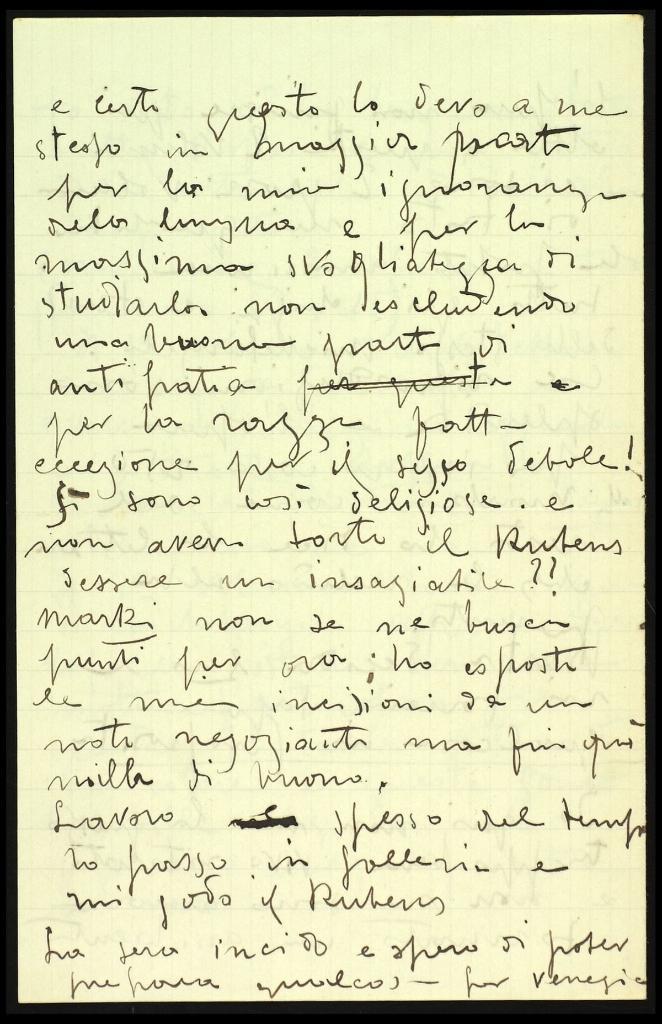 e certo questo lo devo a me
stesso in maggior parte
per la mia ignoranza
della lingua e per la
massima svogliatezza di
studiarla non escludendo
una buona parte di
antipatia per questa e
per la razza fatta
eccezione per il sesso debole!
Si sono così deliziose. e
non aveva torto il Rubens
dessere un insaziabile??
Marki non se ne busca
punti per ora, ho esposte
le mie incisioni da un
noto negoziante ma fin quì
nulla di buono.
Lavoro spesso del tempo
lo passo in galleria e
mi godo il Rubens
La sera incido e spero di poter
preparar qualcosa per Venezia